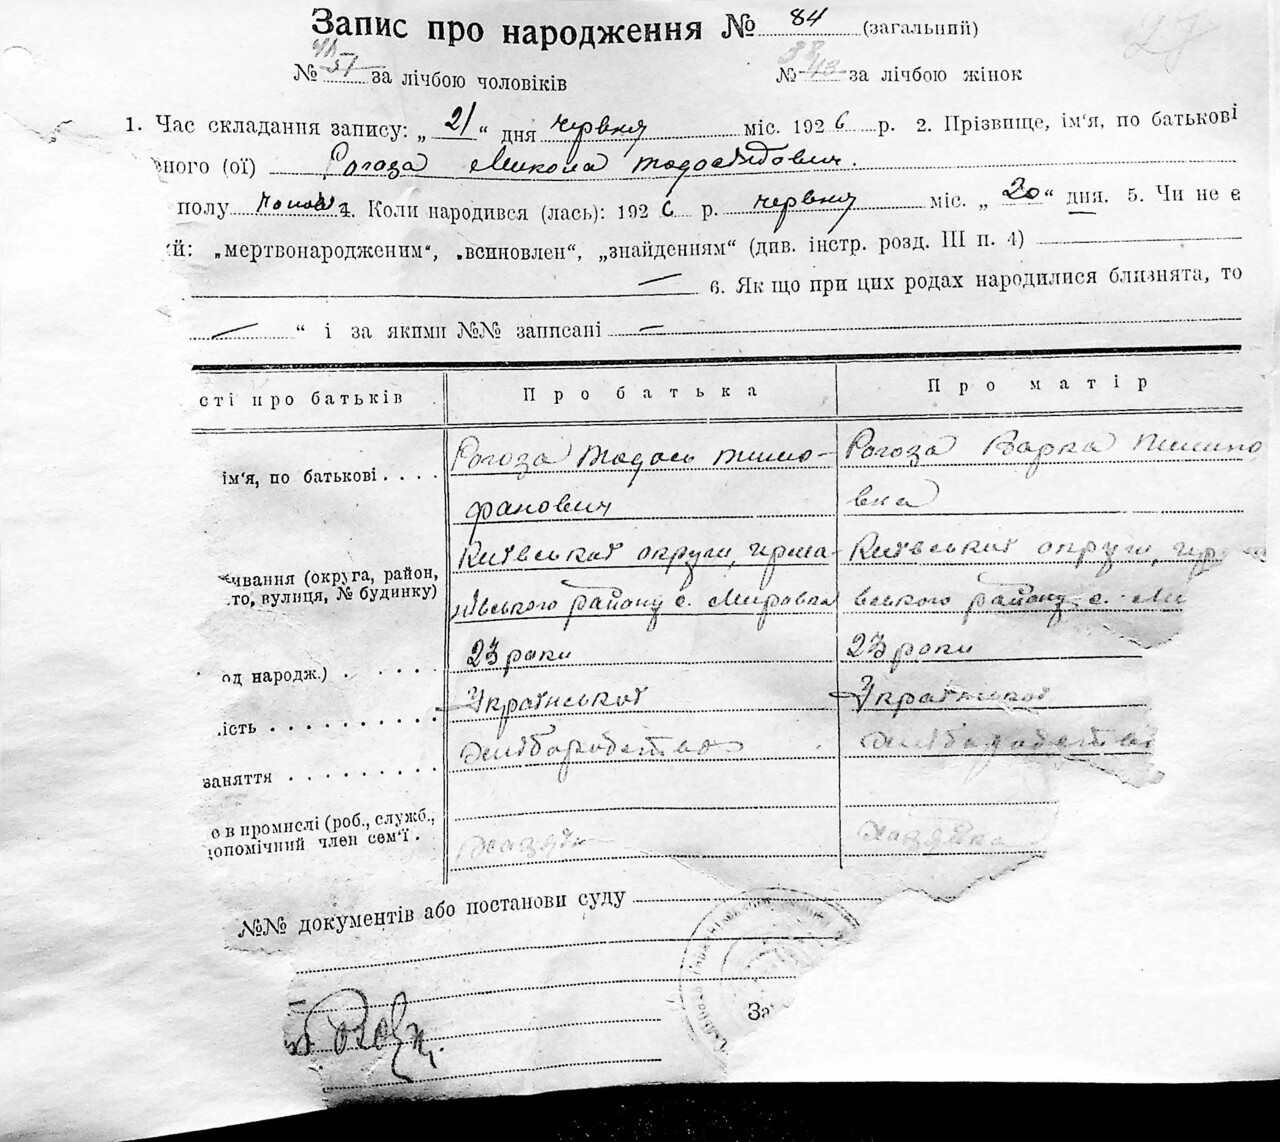 Запис про народження № 84 (загальний)
27
№ 51 за лічбою чоловіків № за лічбою жінок
1. Час складання запису: „ 21 “ дня червня міс. 1926 р. 2. Прізвище, ім'я, по батькові
ного (ої) Рогоза Микола Тодосьйович.
полу чолов. 4. Коли народився (лась): 1926 р. червня міс. „ 20 “ дня. 5. Чи не є
й: „мертвонародженим“, „всиновлен“, „знайденням“ (див. інстр. розд. III п. 4)
6. Як що при цих родах народилися близнята, то
“ і за якими №№ записані
сті про батьків Про батька Про матір
ім'я, по батькові . . . . Рогоза Тодось Тимо- Рогоза Варка
фанович вна
ивання (округа, район, Київської округи, Київської округи,
то, вулиця, № будинку) вського району с. Мировка вського району с. Ми
од народж.) . . . . . 23 роки 23 роки
ість . . . . . . . . . . Української Української
заняття . . . . . . . . хліборобство хліборобство
е в промислі (роб., служб.,
допомічний член сем'ї . хазяїн хазяйка
№№ документів або постанови суду
За